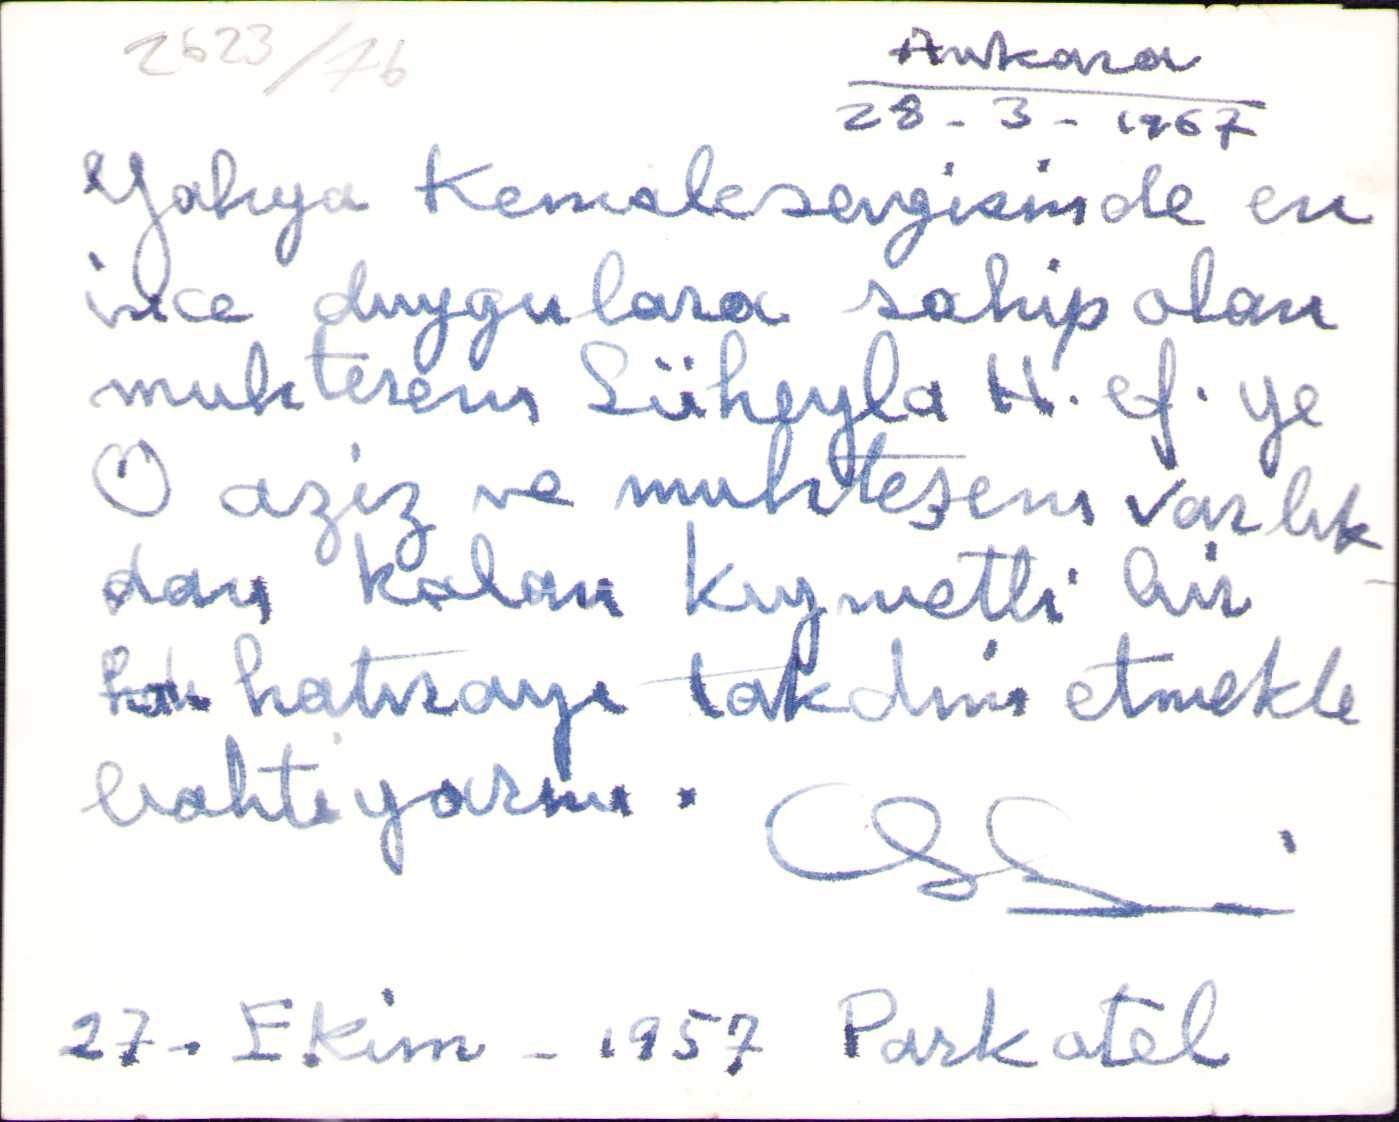 2623/76
Ankara
28 - 3 - 1967
Yahya Kemale sevgisinde en
ince duygulara sahip olan
muhterem Süheyla H. ef. ye
O aziz ve muhteşem varlık-
dan kalan kıymetli bir
hatırayı takdim etmekle
bahtiyarım.
27 - Ekim - 1957 Park otel